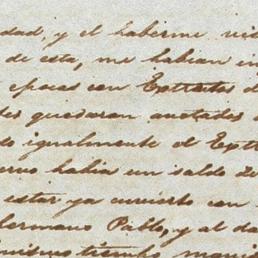 dad, y el haberme
de esta, me habian
epocas con Extractos d
quedaran anotados
do igualmente el Ext
habia un saldo de
estar ya cubierto con
hermano Pablo, y al da
mismo tiempo